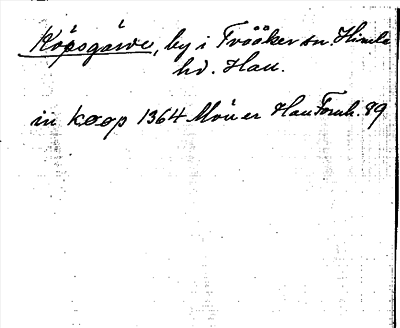 Köpsgärde, by i Tvööker sn. Himle
hd. Hall.
in køøp 1364 Möller Hall Fornh. 89